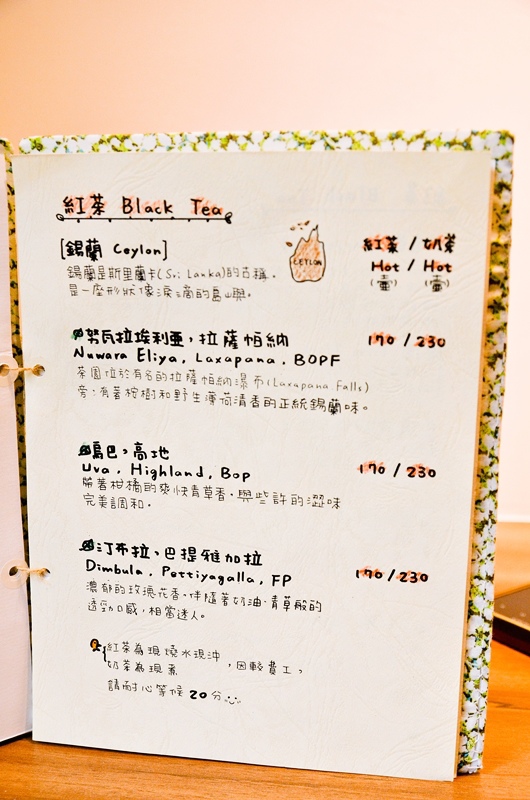 紅茶 Black Tea
[錫蘭 Ceylon]
錫蘭是斯里蘭卡(Sri Lanka)的古稱,
是一座形狀像淚滴的島嶼。
CEYLON
紅茶 / 奶茶
Hot / Hot
(壺) (壺)
努瓦拉埃利亞,拉薩帕納 170 / 230
Nuwara Eliya, Laxapana, BOPF
茶園位於有名的拉薩帕納瀑布(Laxapana Falls)
旁,有著桉樹和野生薄荷清香的正統錫蘭味。
烏巴,高地
Uva, Highland, Bop 170 / 230
帶著柑橘的爽快青草香,與些許的澀味
完美調和。
汀布拉,巴提雅加拉
Dimbula, Pettiyagalla, FP 170 / 230
濃郁的玫瑰花香,伴隨著奶油、青草般的
透勁口感,相當迷人。
紅茶為現燒水現沖
奶茶為現煮 ,因較費工,
請耐心等候 20 分